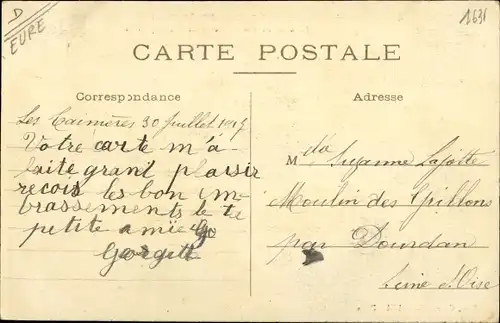 D
EURE
1631
CARTE POSTALE
Correspondance
Adresse
Les Caimères 30 Juillet 1915
Votre carte m'à
faite grant plaisir
recois les bon im-
brassements le te
petite amiè Go
Gorgett
Mda Suzanne Lajotte
Moulin des Spillons
par Dourdan
Seine d'Oise